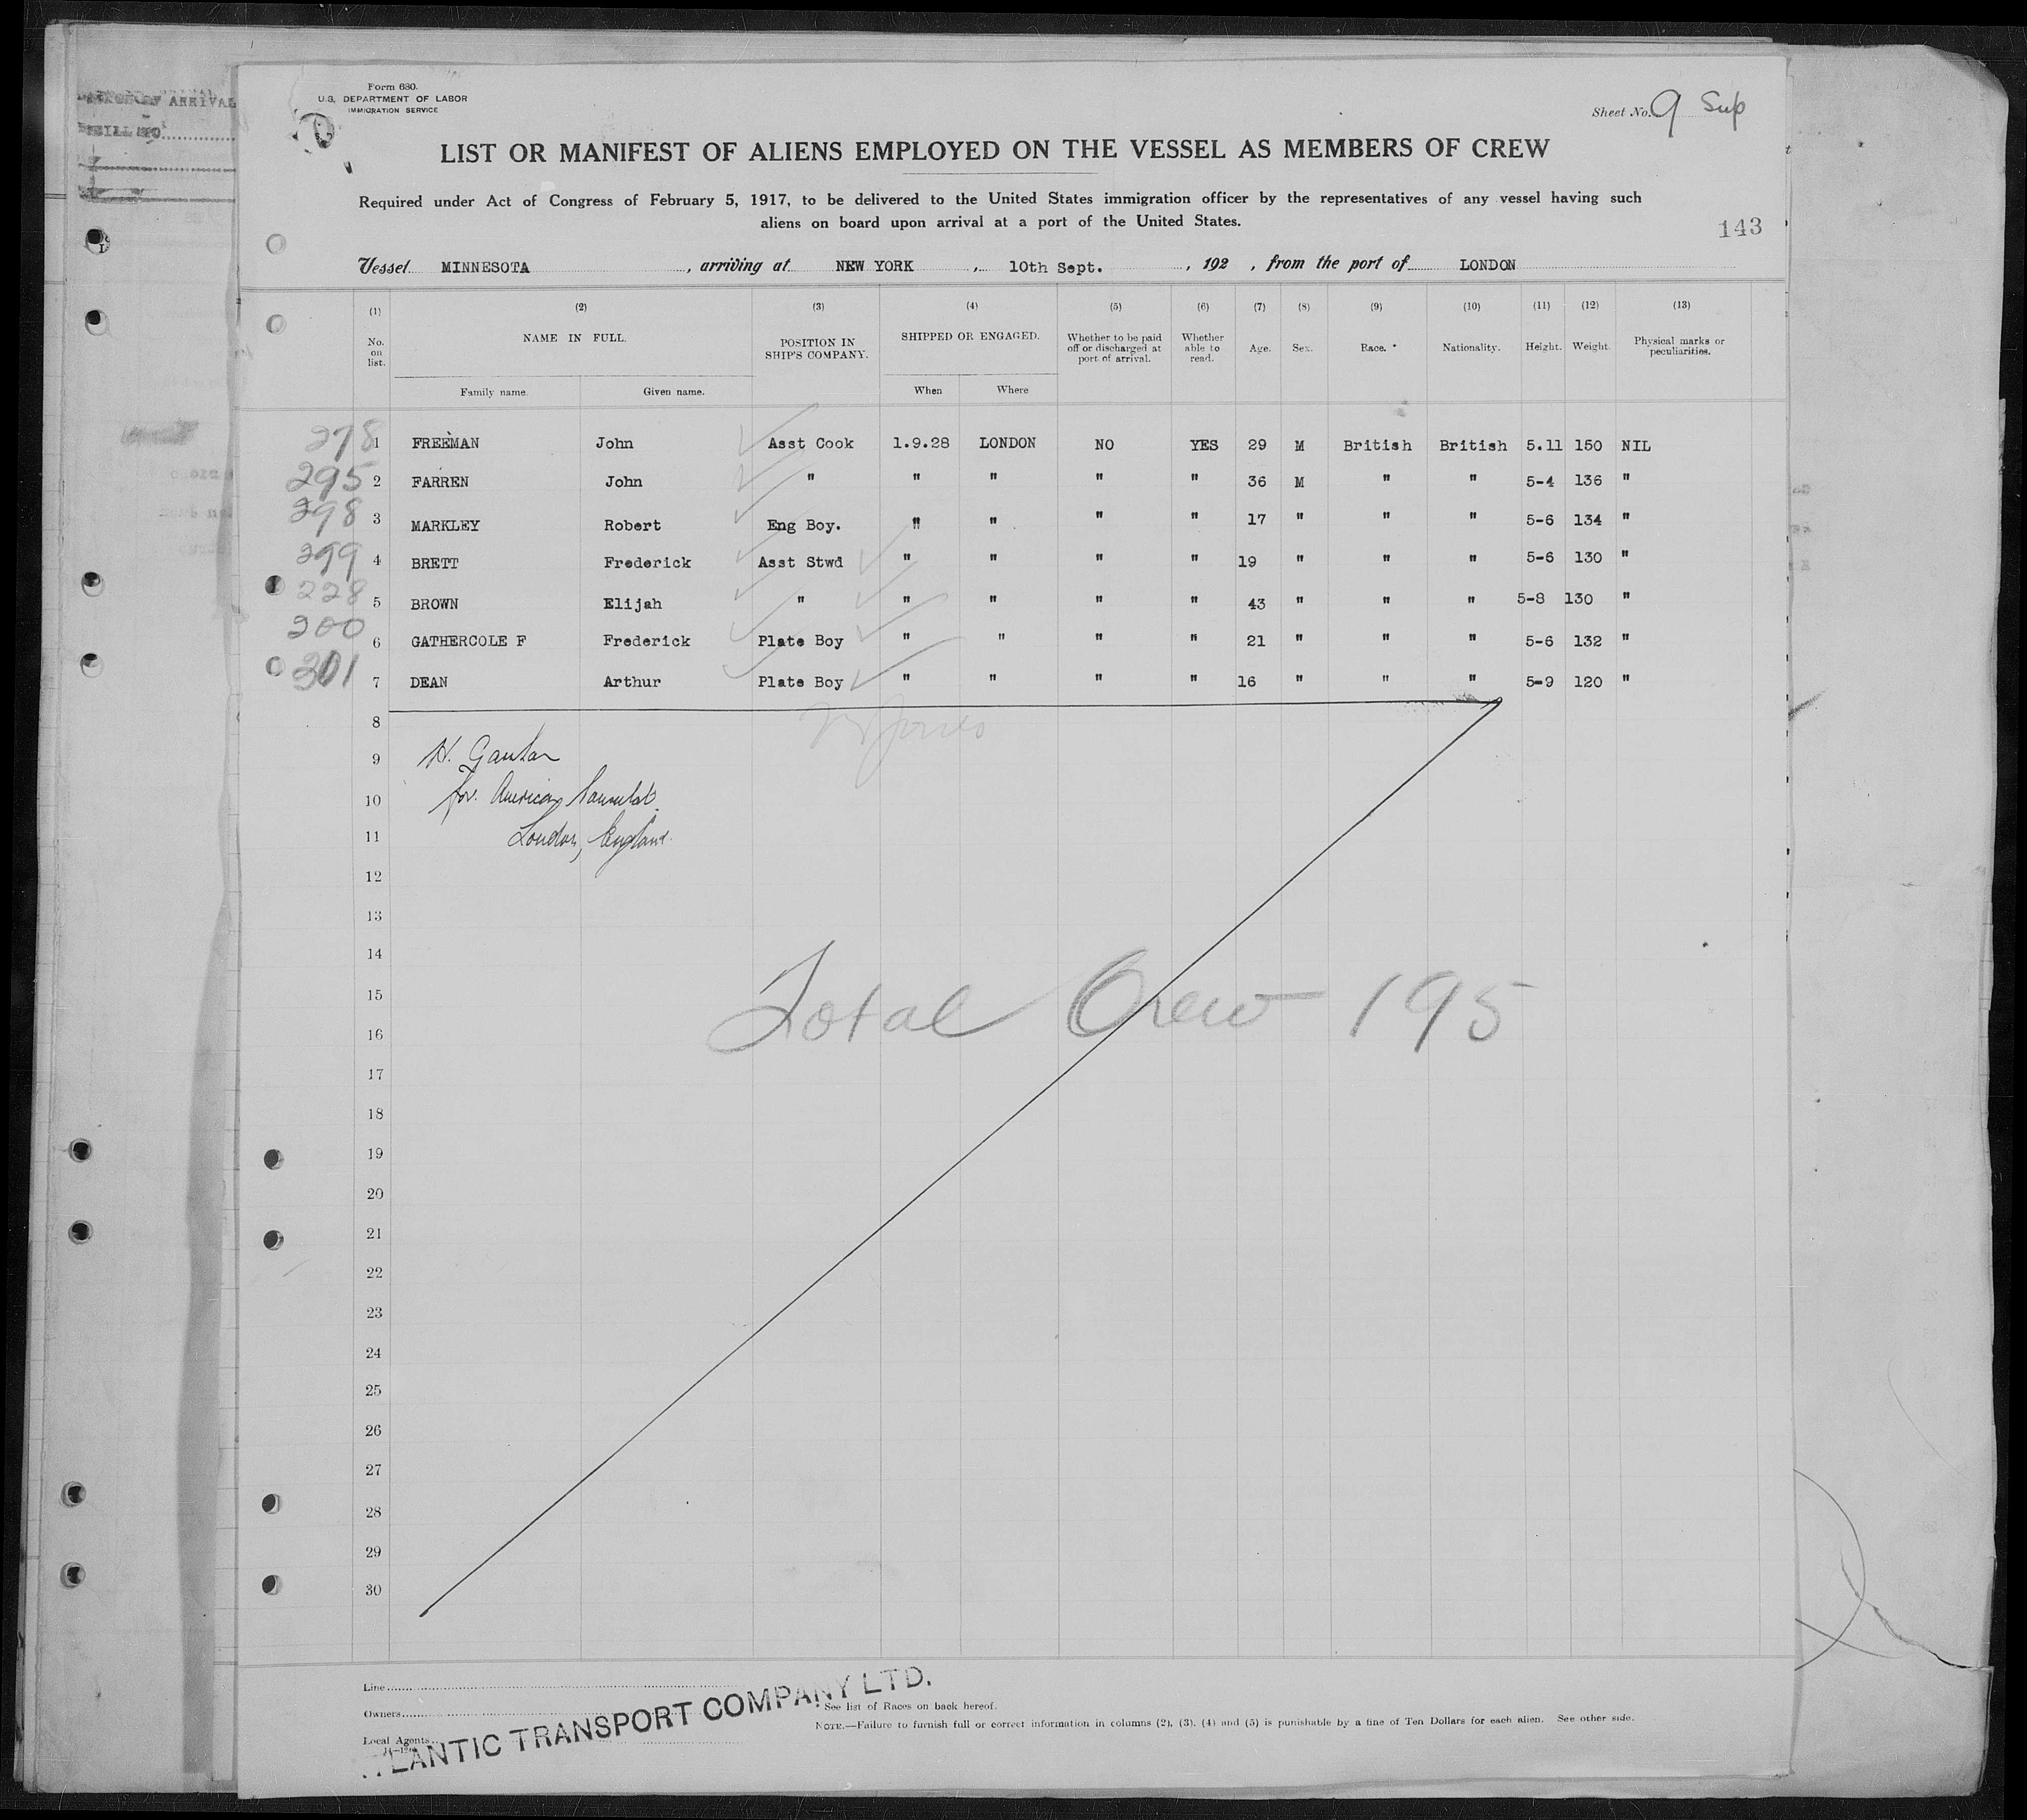 Form 680.
U.S. DEPARTMENT OF LABOR
IMMIGRATION SERVICE
Sheet No. 9 Sup
LIST OR MANIFEST OF ALIENS EMPLOYED ON THE VESSEL AS MEMBERS OF CREW
Required under Act of Congress of February 5, 1917, to be delivered to the United States immigration officer by the representatives of any vessel having such
aliens on board upon arrival at a port of the United States.
143
Vessel MINNESOTA, arriving at NEW YORK, 10th Sept., 192 , from the port of LONDON
(1) (2) (3) (4) (5) (6) (7) (8) (9) (10) (11) (12) (13)
No. on list. NAME IN FULL. POSITION IN SHIP'S COMPANY. SHIPPED OR ENGAGED. Whether to be paid off or discharged at port of arrival. Whether able to read. Age. Sex. Race.* Nationality. Height. Weight. Physical marks or peculiarities.
Family name. Given name. When Where
278 1 FREEMAN John Asst Cook 1.9.28 LONDON NO YES 29 M British British 5.11 150 NIL
295 2 FARREN John " " " " " 36 M " " 5-4 136 "
298 3 MARKLEY Robert Eng Boy. " " " " 17 " " " 5-6 134 "
299 4 BRETT Frederick Asst Stwd " " " " 19 " " " 5-6 130 "
228 5 BROWN Elijah " " " " " 43 " " " 5-8 130 "
200 6 GATHERCOLE F Frederick Plate Boy " " " " 21 " " " 5-6 132 "
301 7 DEAN Arthur Plate Boy " " " " 16 " " " 5-9 120 "
8
9 H.
10 for American Consulat
11 London, England.
12
13
14
15
Total Crew 195
16
17
18
19
20
21
22
23
24
25
26
27
28
29
30
Line
Owners
Local Agents
ATLANTIC TRANSPORT COMPANY LTD.
See list of Races on back hereof.
NOTE.—Failure to furnish full or correct information in columns (2), (3), (4) and (5) is punishable by a fine of Ten Dollars for each alien. See other side.